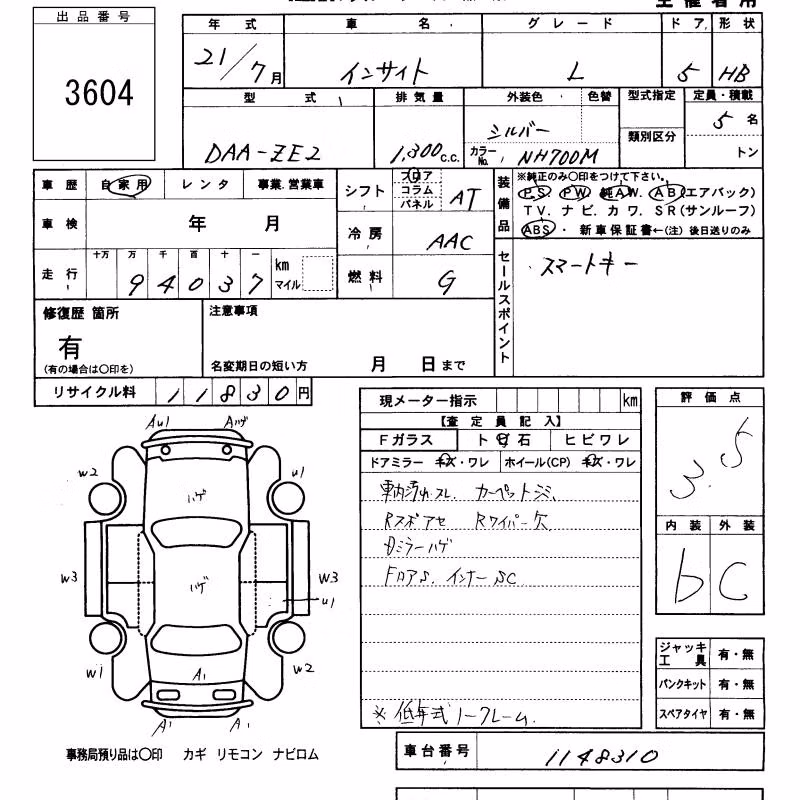 出品番号
3604
年式 車名 グレード ドア 形状
21/7月 インサイト L 5 HB
型式 排気量 外装色 色替 型式指定 定員・積載
DAA-ZE2 1,300c.c. シルバー カラーNo. NH700M 類別区分 5名 トン
車歴 自家用 レンタ 事業.営業車
シフト フロア コラム パネル AT
装備品 ※純正のみ〇印をつけて下さい。
PS PW 純AW. AB(エアバック)
TV. ナビ. カワ. SR(サンルーフ)
ABS・ 新車保証書←(注) 後日送りのみ
車検 年 月
冷房 AAC
走行 十万 万 千 百 十 一
94037 km マイル
燃料 G
セールスポイント スマートキー
修復歴 箇所
有
(有の場合は〇印を)
注意事項
名変期日の短い方 月 日まで
リサイクル料 11830円
現メーター指示 km
【査定員記入】
Fガラス ト石 ヒビワレ
ドアミラー キズ・ワレ ホイール(CP) キズ・ワレ
車内汚れスレ カーペットジミ
Rスポアセ Rワイパー欠
Dミラーハゲ
FロアS. インナーSC
※低年式ノークレーム.
評価点
3.5
内装 外装
b C
ジャッキ工具 有・無
パンクキット 有・無
スペアタイヤ 有・無
AU1 Aハゲ
W2 U1
ハゲ
W3 W3
ハゲ U1
W1 A1 W2
A1 A1
事務局預り品は〇印 カギ リモコン ナビロム
車台番号 1148310